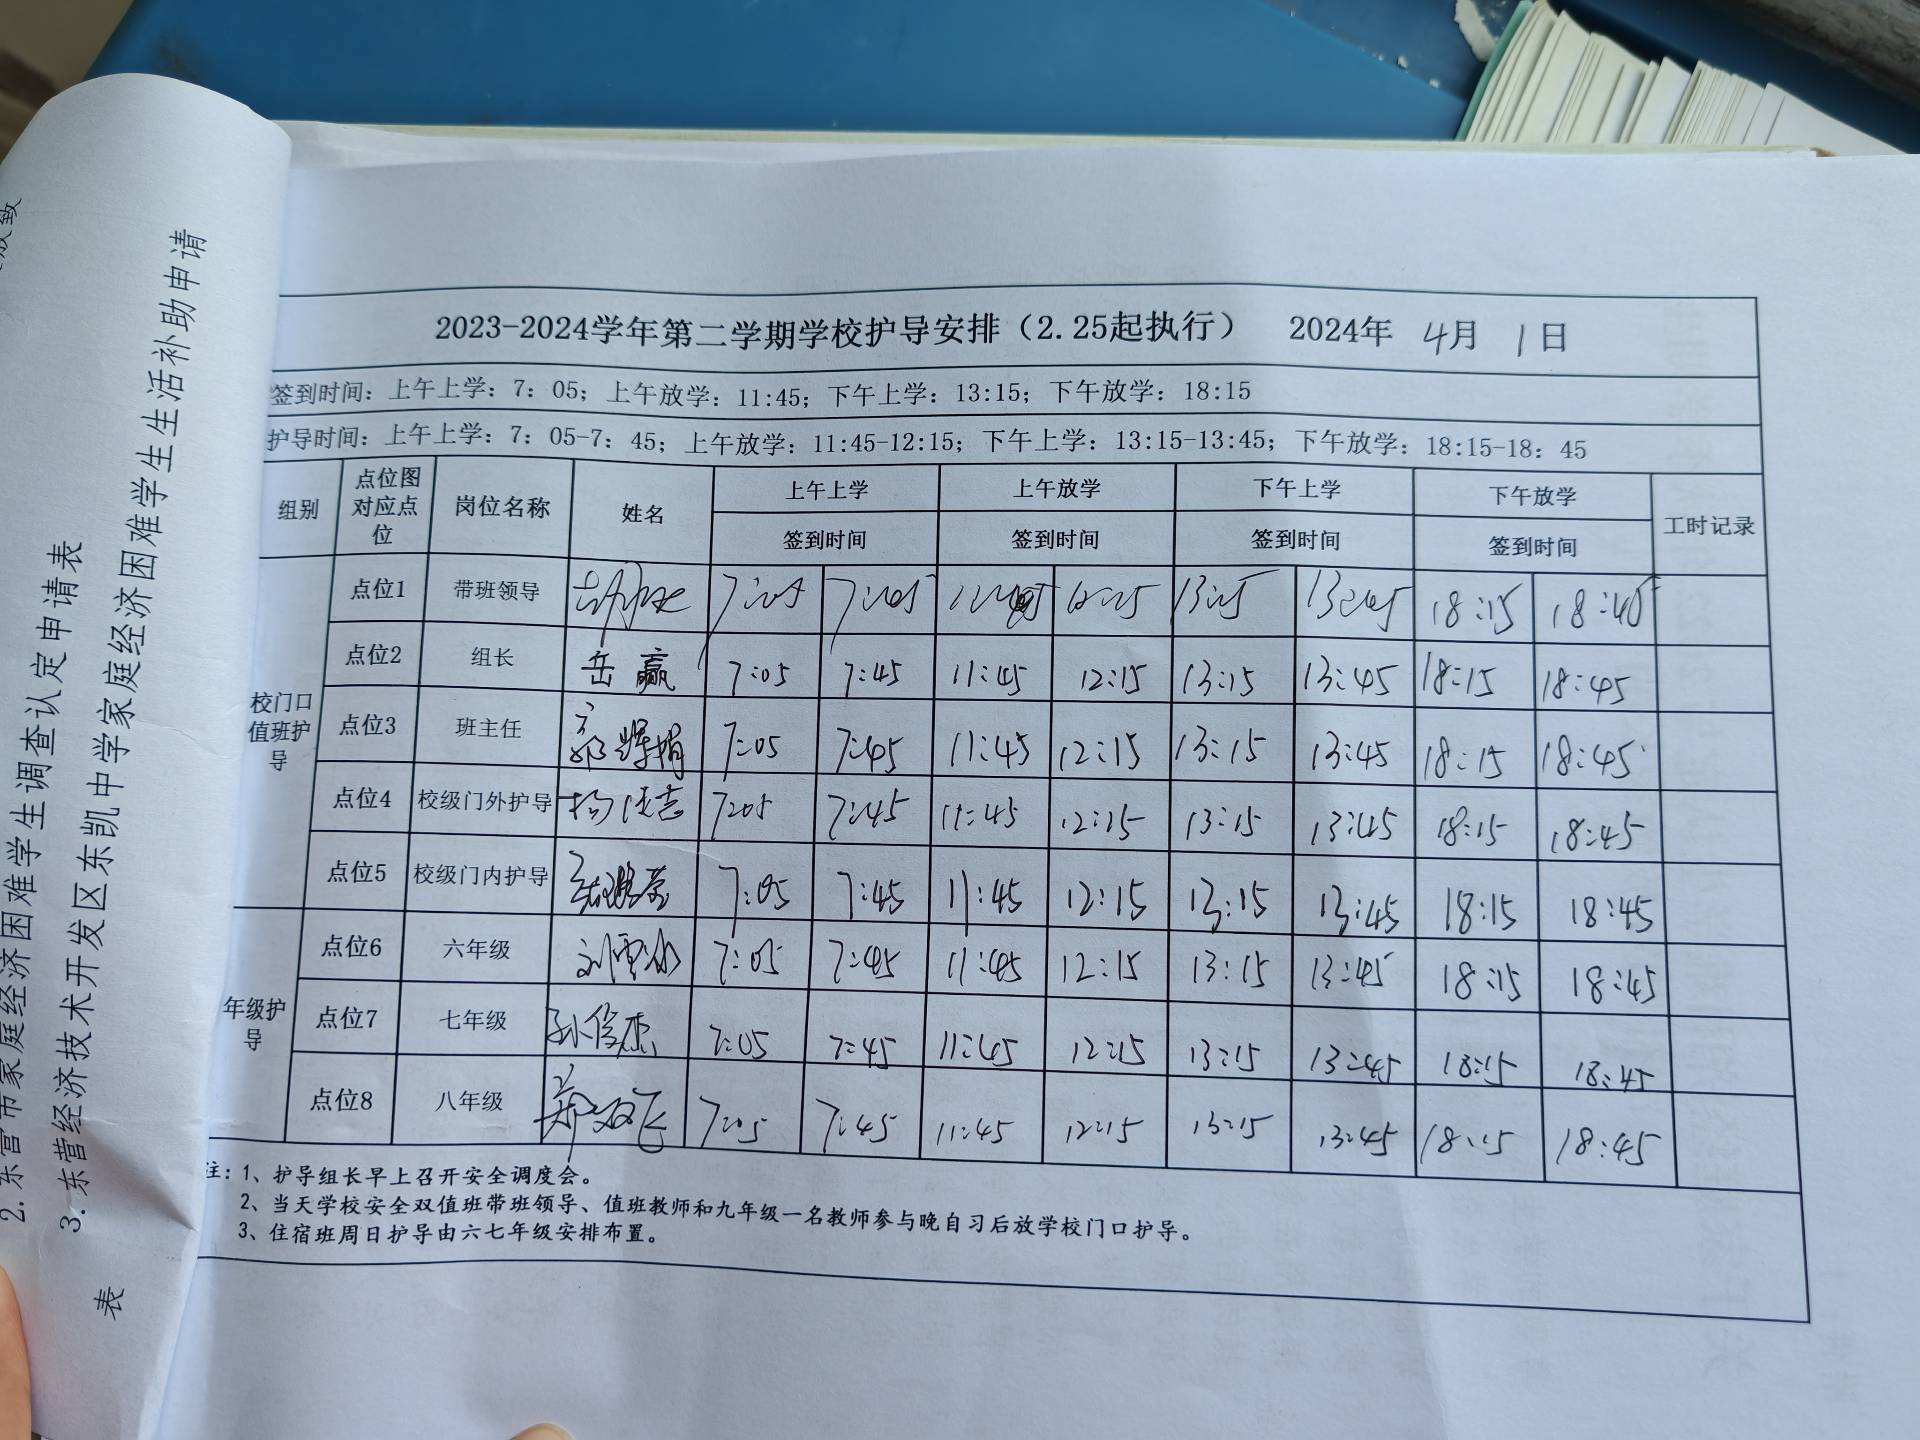 2. 东营市家庭经济困难学生调查认定申请表
3. 东营经济技术开发区东凯中学家庭经济困难学生生活补助申请
表
2023-2024学年第二学期学校护导安排（2.25起执行） 2024年 4月 1日
签到时间：上午上学：7：05；上午放学：11:45；下午上学：13:15；下午放学：18:15
护导时间：上午上学：7：05-7：45；上午放学：11:45-12:15；下午上学：13:15-13:45；下午放学：18:15-18：45
组别 点位图对应点位 岗位名称 姓名 上午上学 上午放学 下午上学 下午放学 工时记录
签到时间 签到时间 签到时间 签到时间
校门口值班护导
点位1 带班领导 13:15 13:45 18:15 18:45
点位2 组长 岳赢 7:05 7:45 11:45 12:15 13:15 13:45 18:15 18:45
点位3 班主任 7:05 7:45 11:45 12:15 13:15 13:45 18:15 18:45
点位4 校级门外护导 7:05 7:45 11:45 12:15 13:15 13:45 18:15 18:45
点位5 校级门内护导 7:05 7:45 11:45 12:15 13:15 13:45 18:15 18:45
年级护导
点位6 六年级 刘雪冰 7:05 7:45 11:45 12:15 13:15 13:45 18:15 18:45
点位7 七年级 孙俊杰 7:05 7:45 11:45 12:15 13:15 13:45 18:15 18:45
点位8 八年级 郑双飞 7:05 7:45 11:45 12:15 13:15 13:45 18:15 18:45
注：1、护导组长早上召开安全调度会。
2、当天学校安全双值班带班领导、值班教师和九年级一名教师参与晚自习后放学校门口护导。
3、住宿班周日护导由六七年级安排布置。